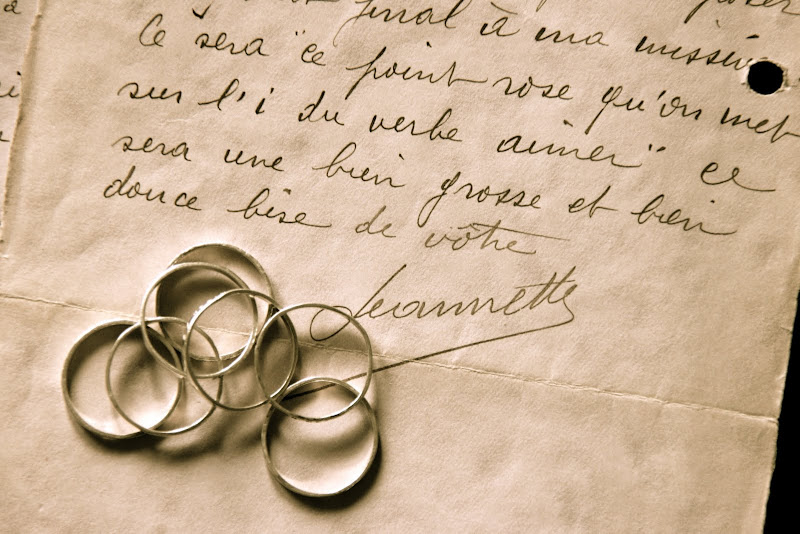 final à ma missive
Ce sera "ce point rose qu'on met
sur l'i du verbe aimer" ce
sera une bien grosse et bien
douce bise de vôtre
Jeannette